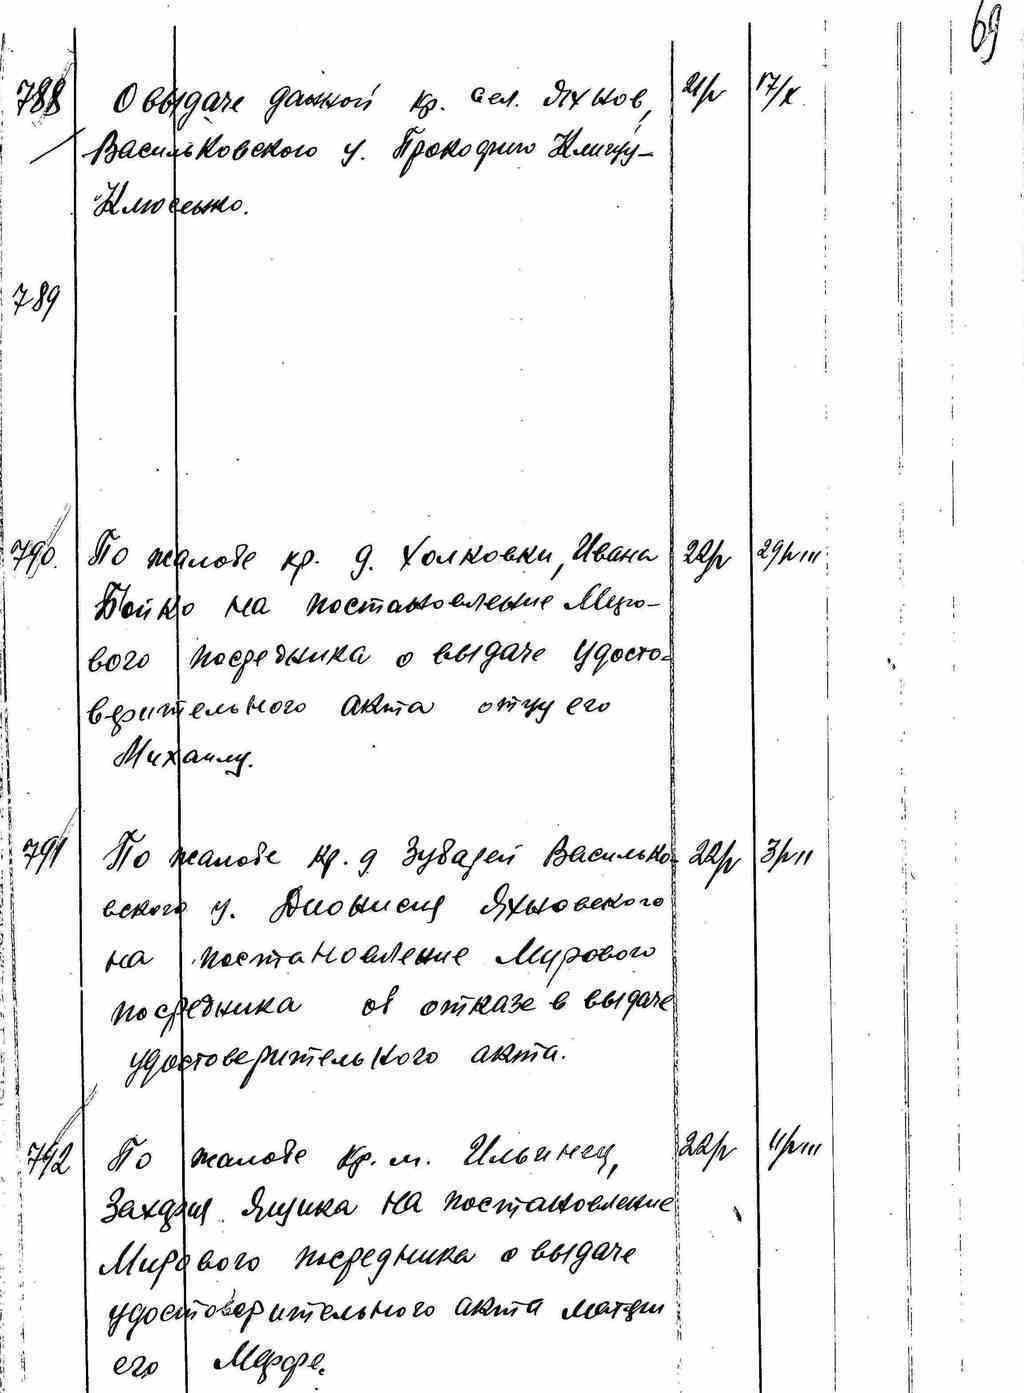 69
788 О выдаче данной кр. сел. Яхнов, 21/р 17/X.
Васильковского у. Прокофию Клищу-
Клюсенко.
789
790. По жалобе кр. д. Холковки, Ивана 22/р 29/р III
Бойко на постановление Миро-
вого посредника о выдаче удосто-
верительного акта отцу его
Михаилу.
791 По жалобе кр. д Зубарей Василько- 22/р 3/р II
вского у. Дионисия Яхновского
на постановление Мирового
посредника об отказе в выдаче
удостоверительного акта.
792 По жалобе кр. м. Ильинец, 22/р 11/р III
Захария Ящика на постановление
Мирового посредника о выдаче
удостоверительного акта матери
его Марфе.